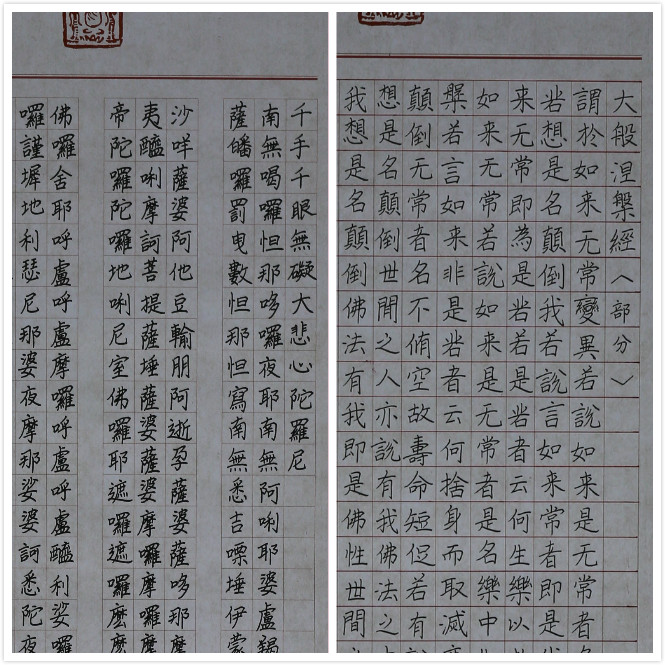 千手千眼無礙大悲心陀羅尼
南無喝囉怛那哆囉夜耶南無阿唎耶婆盧羯
薩皤囉罰曳數怛那怛寫南無悉吉㗚埵伊蒙
沙咩薩婆阿他豆輸朋阿逝孕薩婆薩哆那摩
夷醯唎摩訶菩提薩埵薩婆薩婆摩囉摩囉摩
帝陀囉陀囉地唎尼室佛囉耶遮囉遮囉麼麼
佛囉舍耶呼盧呼盧摩囉呼盧呼盧醯利娑囉
囉謹墀地利瑟尼那婆夜摩那娑婆訶悉陀夜
大般涅槃經（部分）
謂於如来无常變異若説如来是无常者
苦想是名顛倒我若説言如来常者即是
来无常即為是苦若是苦者云何生樂以
如来无常若説如来是无常者是名樂中
槃若言如来非是苦者云何捨身而取滅
顛倒无常者名不脩空故壽命短促若有
想是名顛倒世間之人亦説有我佛法之
我想是名顛倒佛法有我即是佛性世間